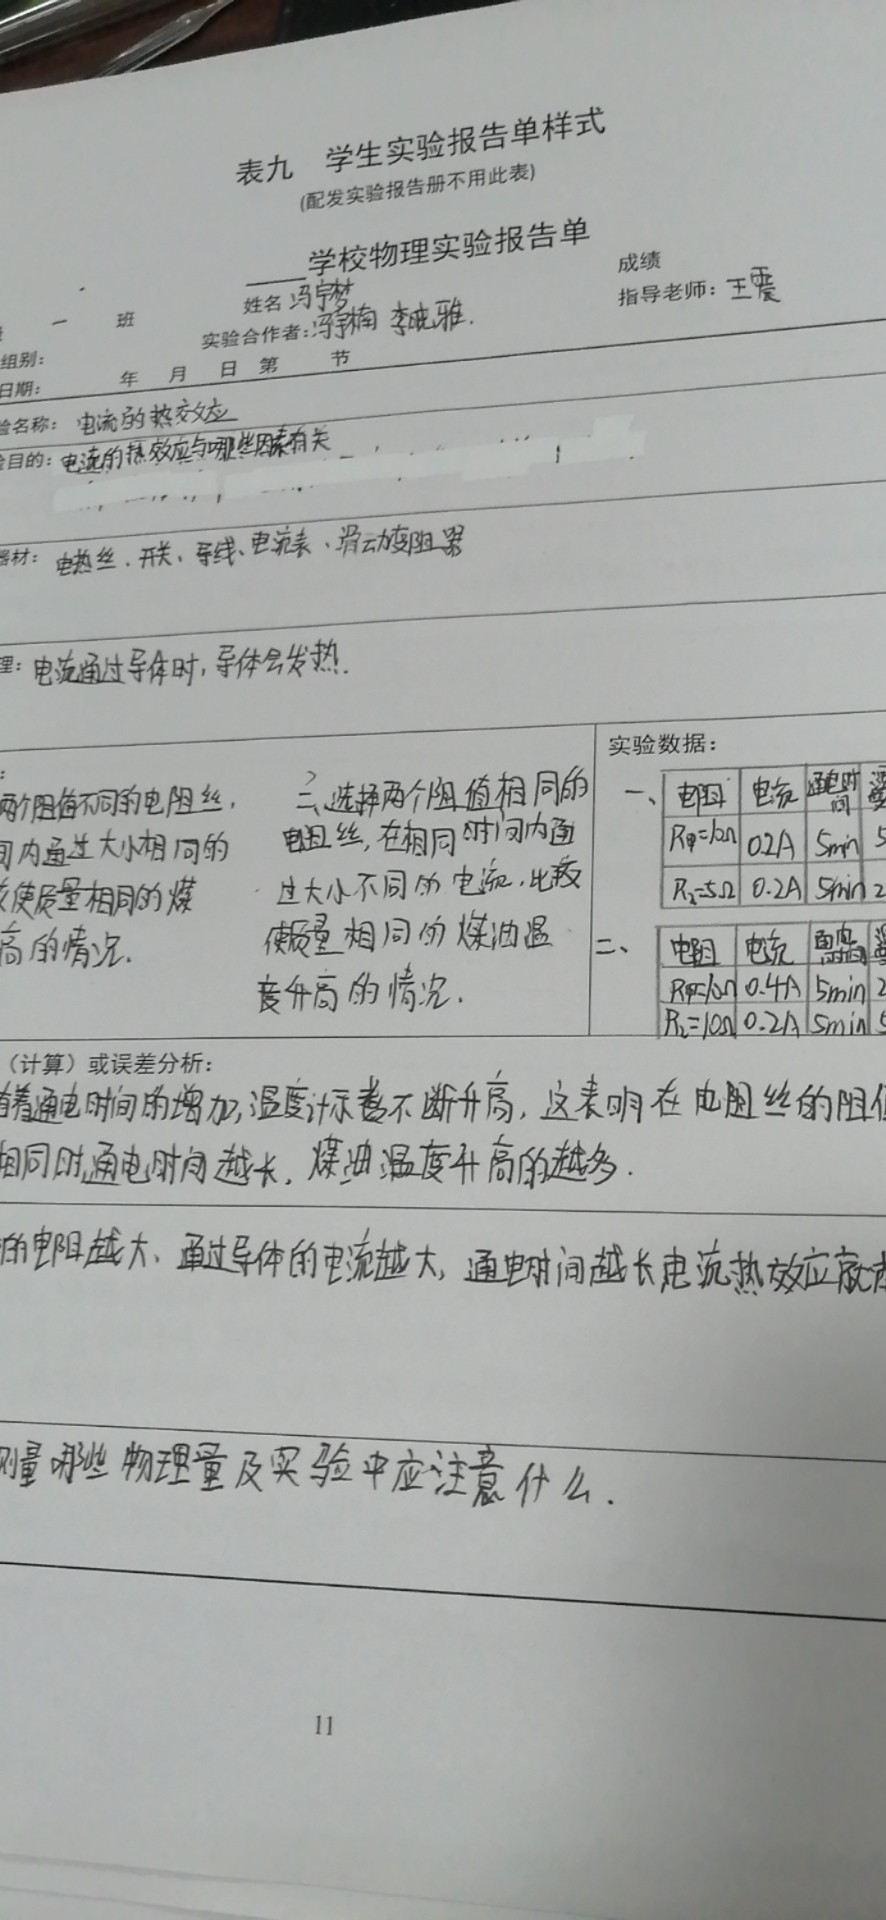 表九 学生实验报告单样式
(配发实验报告册不用此表)
学校物理实验报告单
成绩
一 班 姓名 冯宇梦
指导老师：王震
组别： 实验合作者：冯宇楠 李 雅.
日期： 年 月 日 第 节
验名称： 电流的热效应
目的：电流的热效应与哪些因素有关
器材： 电热丝、开关、导线、电流表、滑动变阻器
理：电流通过导体时，导体会发热.
两个阻值不同的电阻丝，
内通过大小相同的
使质量相同的煤
高的情况.
二、选择两个阻值相同的
电阻丝，在相同时间内通
过大小不同的电流，比较
使质量相同的煤油温
度升高的情况.
实验数据：
一、 电阻 电流 通电时间
R甲=10Ω 0.2A 5min 5
R2=5Ω 0.2A 5min 2
二、 电阻 电流
R甲=10Ω 0.4A 5min 2
R2=10Ω 0.2A 5min 5
（计算）或误差分析：
着通电时间的增加，温度计示数不断升高，这表明在电阻丝的阻值
相同时，通电时间越长，煤油温度升高的越多.
的电阻越大、通过导体的电流越大，通电时间越长电流热效应就
测量哪些物理量及实验中应注意什么.
11